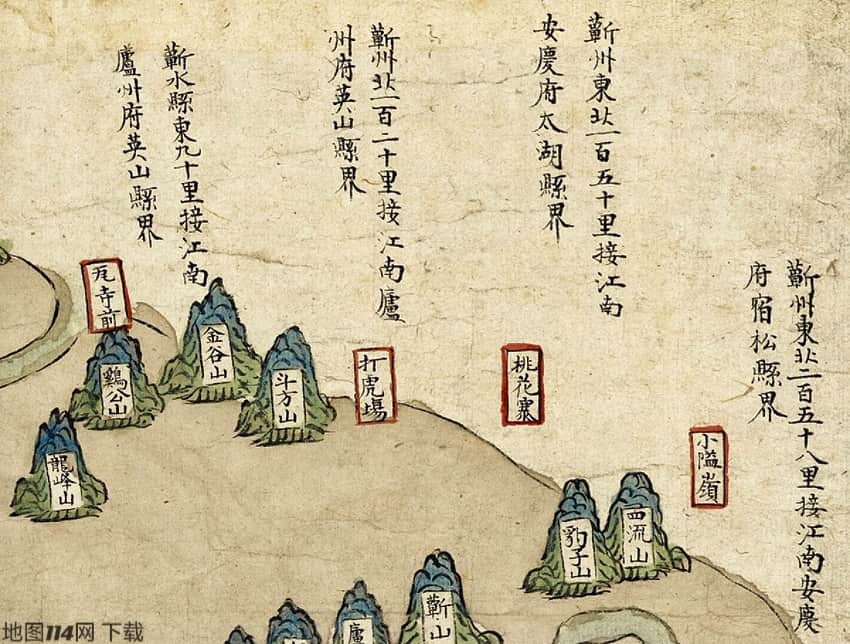 蘄州東北二百五十八里接江南安慶
府宿松縣界
蘄州東北一百五十里接江南
安慶府太湖縣界
蘄州北一百二十里接江南廬
州府英山縣界
蘄水縣東九十里接江南
廬州府英山縣界
小隘嶺
桃花寨
打虎塲
瓦寺前
西流山
豹子山
斗方山
金谷山
鷄公山
龍峰山
蘄山
廬
地图114网 下载